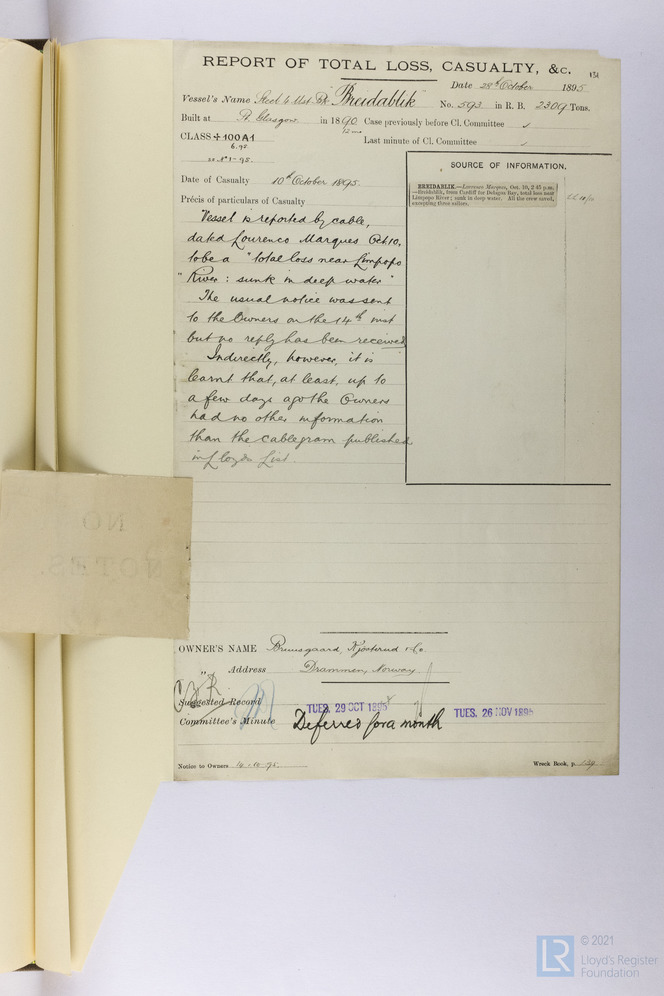 REPORT OF TOTAL LOSS, CASUALTY, &c.
Date 28th October 1895
Vessel's Name Steel 4 Mst. Bk. "Breidablik" No. 593 in R. B. 2309 Tons.
Built at Pt. Glasgow in 1890 Case previously before Cl. Committee ✓
CLASS +100A1 Last minute of Cl. Committee
6.95
Date of Casualty 10th October 1895.
Précis of particulars of Casualty
Vessel is reported by cable,
dated Lourenco Marques Oct. 10,
to be a "total loss near Limpopo
"River: sunk in deep water"
The usual notice was sent
to the Owners on the 14th inst
but no reply has been received
Indirectly, however, it is
learnt that, at least, up to
a few days ago the Owners
had no other information
than the cablegram published
in Lloyds List
SOURCE OF INFORMATION.
BREIDABLIK.—Lourenco Marques, Oct. 10, 2 45 p.m.
—Breidablik, from Cardiff for Delagoa Bay, total loss near
Limpopo River; sunk in deep water. All the crew saved,
excepting three sailors.
NO
NOTES.
OWNER'S NAME Bruusgaard, Kjosterud & Co
" Address Drammen, Norway
Suggested Record
Committee's Minute TUES. 29 OCT 1895 Deferred for a month TUES. 26 NOV 1895
Notice to Owners 14.10.95. Wreck Book, p.
LR
© 2021
Lloyd's Register
Foundation